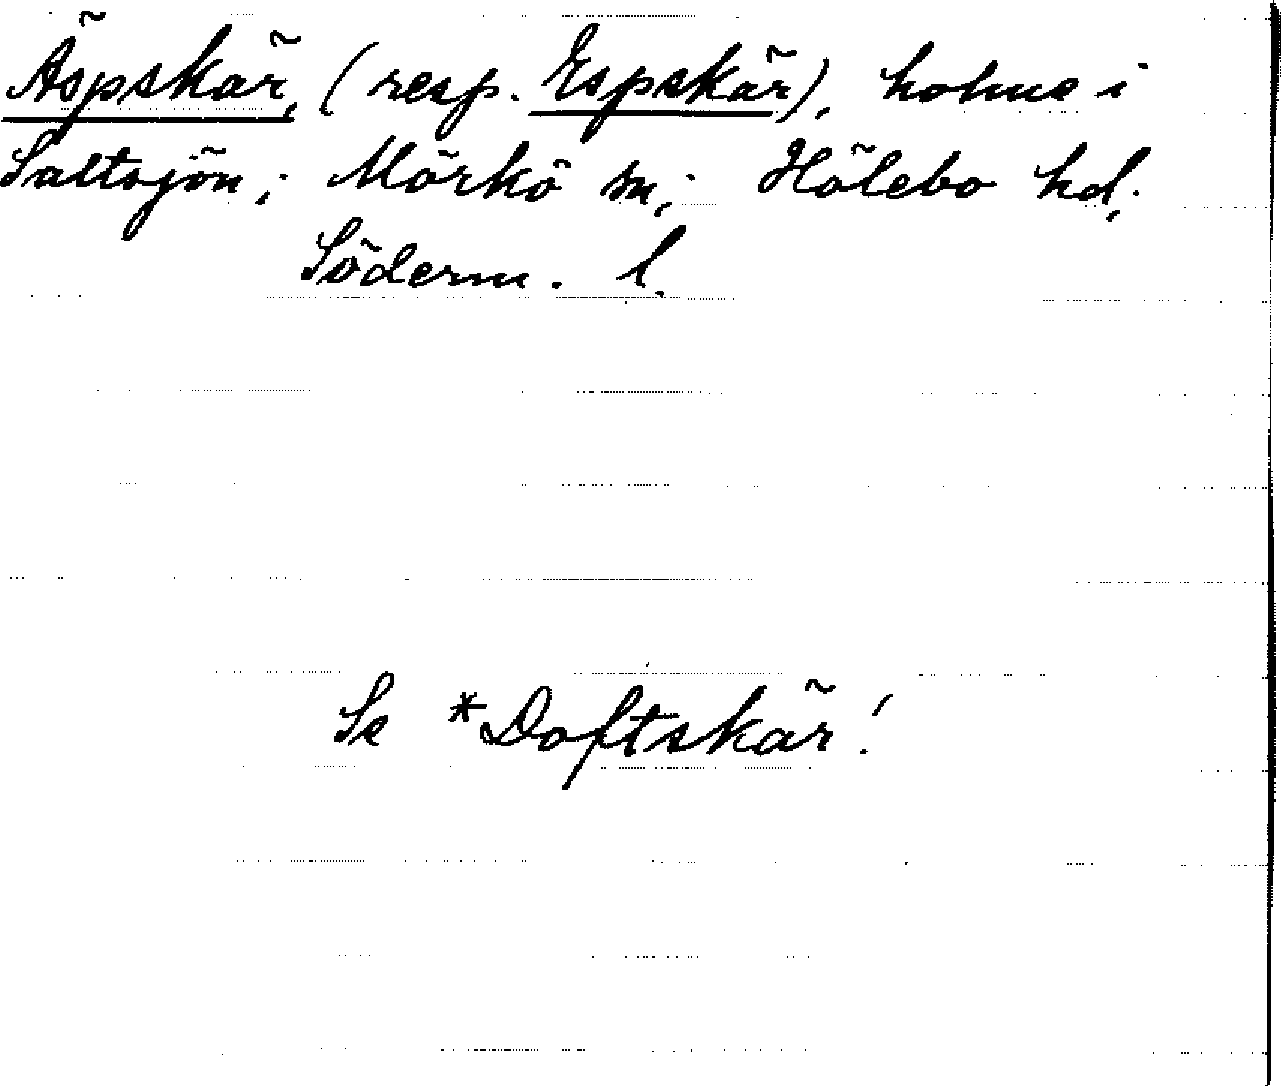 Äspskär, (resp. Espskär), holme i
Saltsjön; Mörkö sn; Hölebo hd;
Söderm. l.
Se *Doftskär!